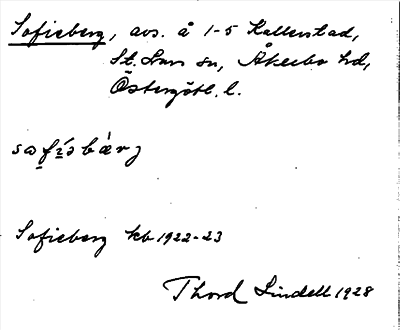 Sofieberg, avs. å 1-5 Kallerstad,
St. Lars sn, Åkerbo hd,
Östergötl. l.
sofisbærj
Sofieberg kb 1922-23
Thord Lindell 1928